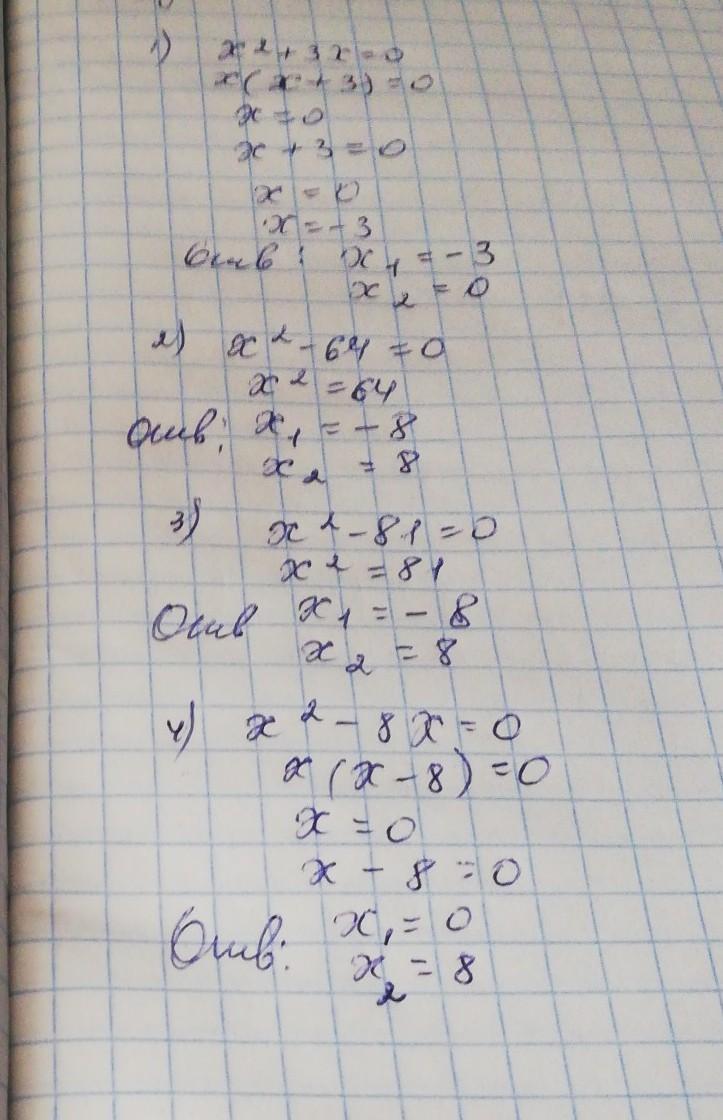 1) x² + 3x = 0
x(x + 3) = 0
x = 0
x + 3 = 0
x = 0
x = -3
Отв: x₁ = -3
x₂ = 0
2) x² - 64 = 0
x² = 64
Отв: x₁ = -8
x₂ = 8
3) x² - 81 = 0
x² = 81
Отв x₁ = -8
x₂ = 8
4) x² - 8x = 0
x(x - 8) = 0
x = 0
x - 8 = 0
Отв: x₁ = 0
x₂ = 8